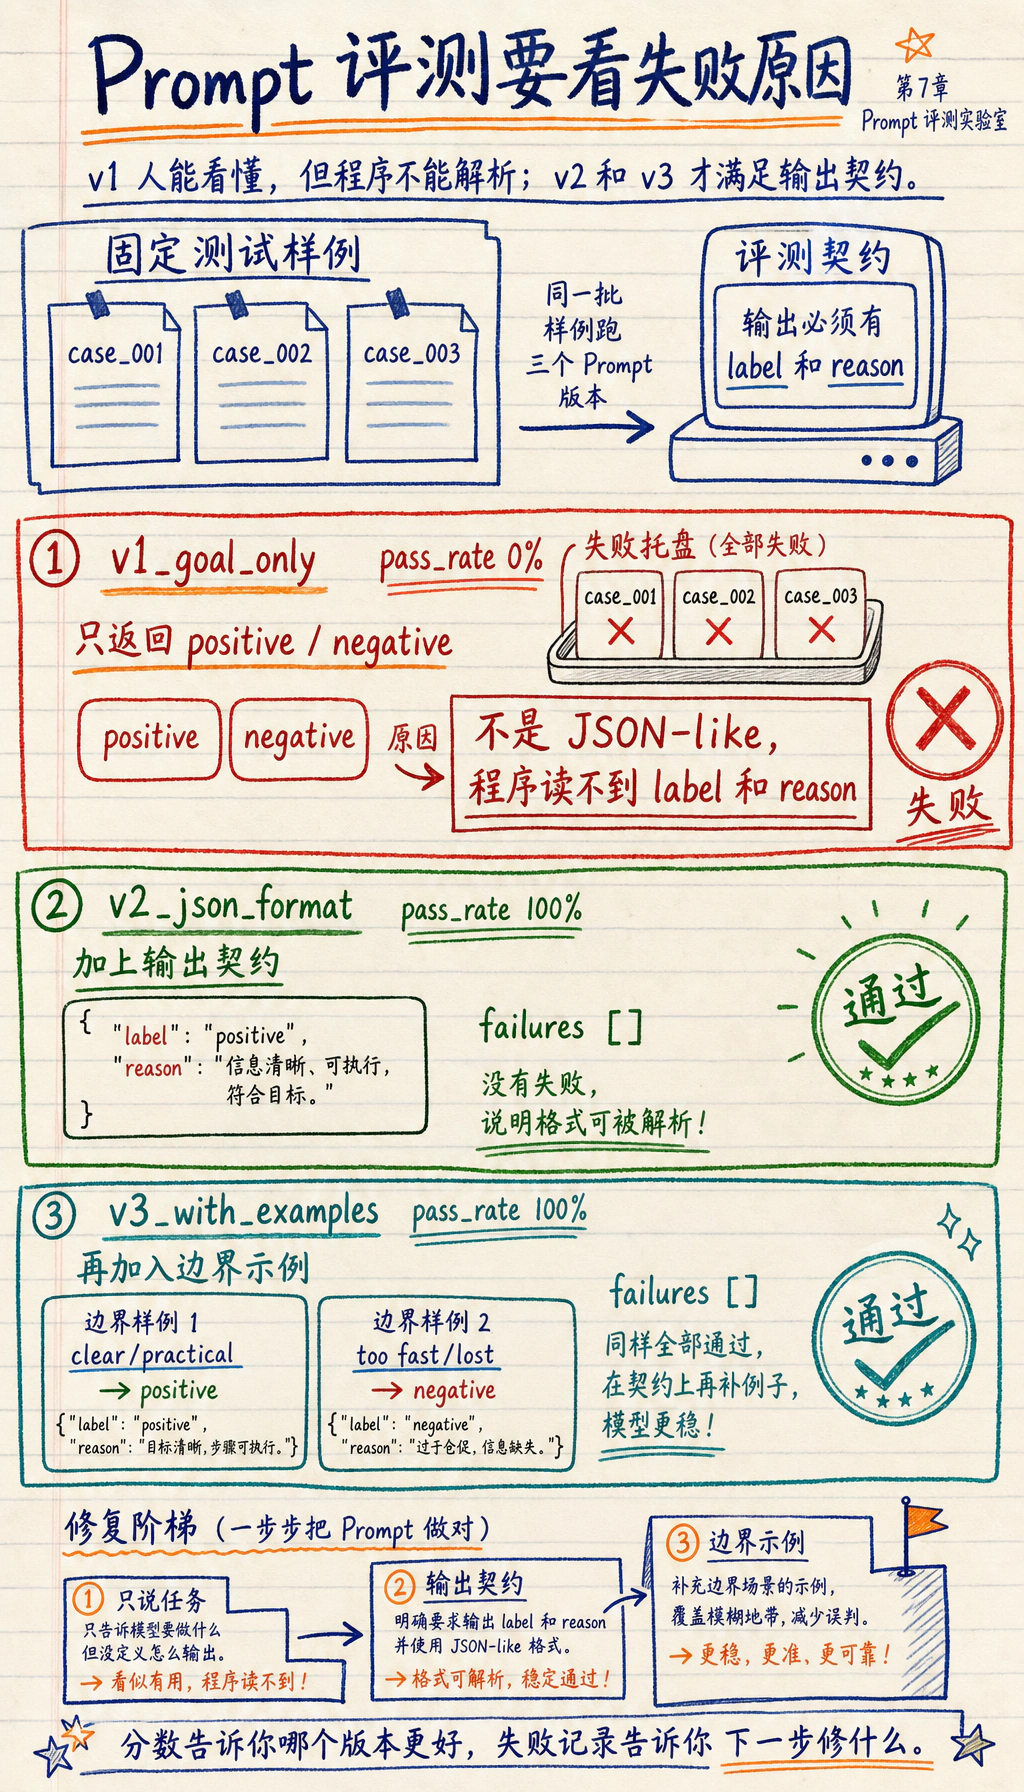 Prompt 评测要看失败原因
第7章
Prompt 评测实验室
v1 人能看懂，但程序不能解析；v2 和 v3 才满足输出契约。
固定测试样例
case_001
case_002
case_003
同一批
样例跑
三个 Prompt
版本
评测契约
输出必须有
label 和 reason
① v1_goal_only
pass_rate 0%
失败托盘（全部失败）
case_001
case_002
case_003
只返回 positive / negative
positive
negative
原因
不是 JSON-like，
程序读不到 label 和 reason
失败
② v2_json_format
pass_rate 100%
加上输出契约
{
"label": "positive",
"reason": "信息清晰、可执行，
符合目标。"
}
failures []
没有失败，
说明格式可被解析！
通过
③ v3_with_examples
pass_rate 100%
再加入边界示例
边界样例 1
clear/practical
→ positive
{"label": "positive",
"reason": "目标清晰,步骤可执行。"}
边界样例 2
too fast/lost
→ negative
{"label": "negative",
"reason": "过于仓促,信息缺失。"}
failures []
同样全部通过，
在契约上再补例子，
模型更稳！
通过
修复阶梯（一步步把 Prompt 做对）
① 只说任务
只告诉模型要做什么
但没定义怎么输出。
→ 看似有用，程序读不到！
② 输出契约
明确要求输出 label 和 reason
并使用 JSON-like 格式。
→ 格式可解析，稳定通过！
③ 边界示例
补充边界场景的示例，
覆盖模糊地带，减少误判。
→ 更稳，更准、更可靠！
分数告诉你哪个版本更好，失败记录告诉你 下一步修什么。